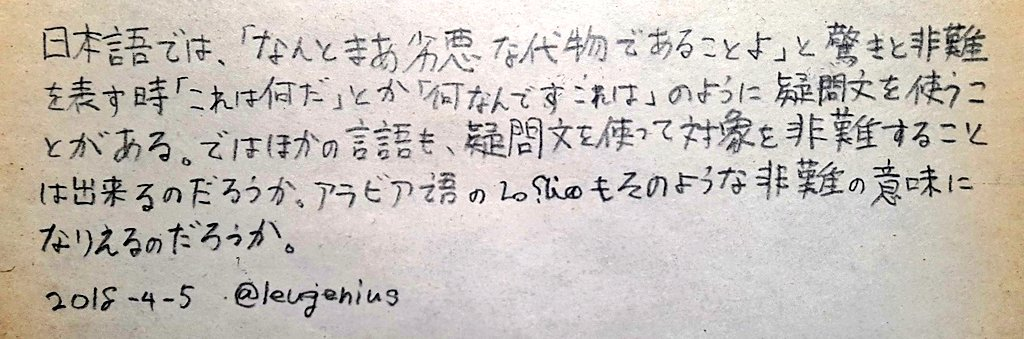 日本語では、「なんとまあ劣悪な代物であることよ」と驚きと非難
を表す時「これは何だ」とか「何なんですこれは」のように疑問文を使うこ
とがある。ではほかの言語も、疑問文を使って対象を非難すること
は出来るのだろうか。アラビア語の ما هذا؟ もそのような非難の意味に
なりえるのだろうか。
2018-4-5 @leugenius